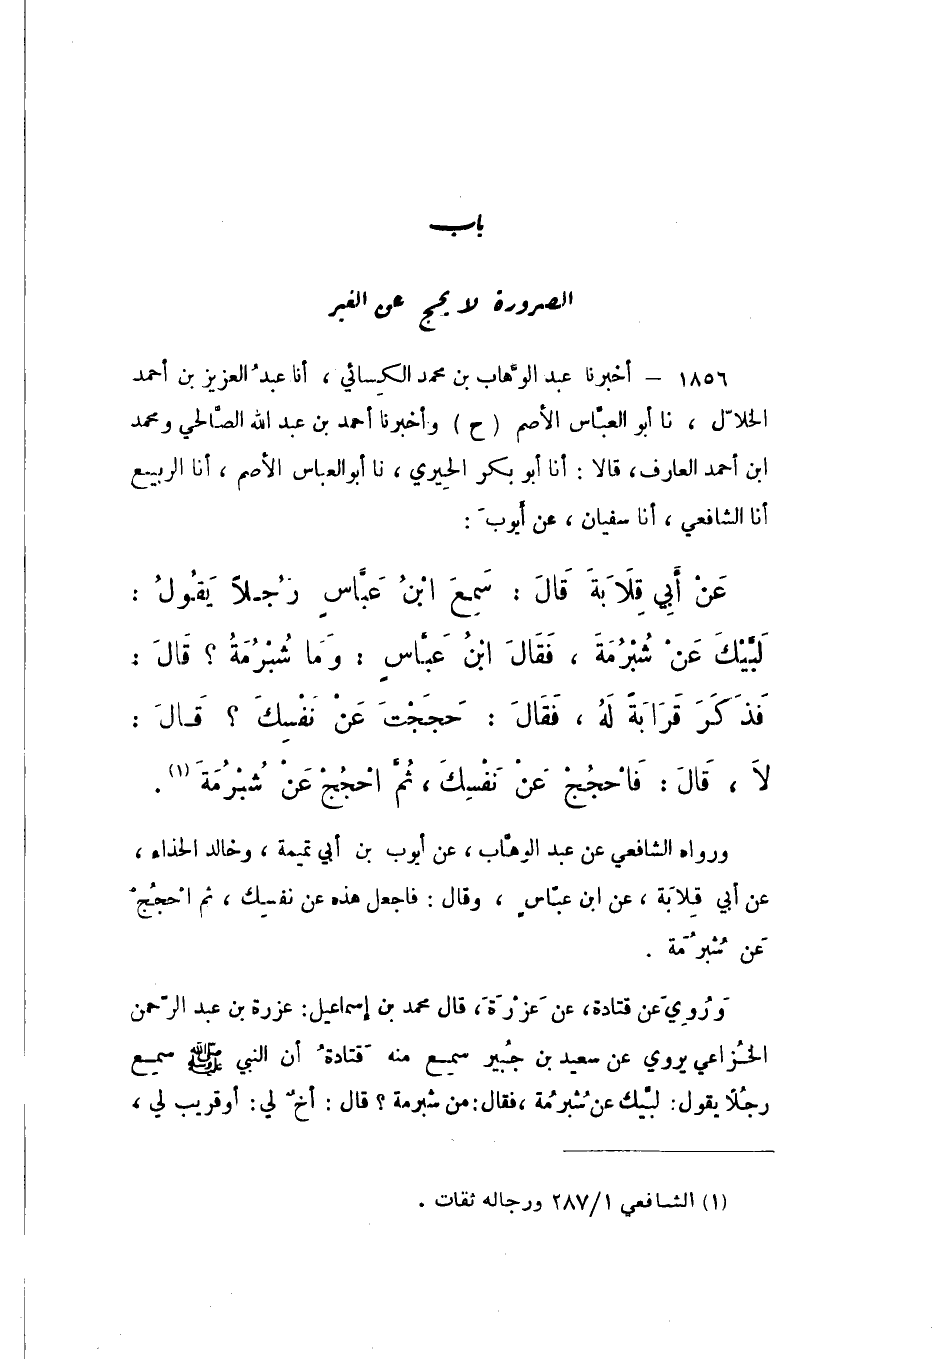 باب
الصرورة لا يحج عن الغير
١٨٥٦ – أخبرنا عبد الوهّاب بن محمد الكِسائي ، أنا عبدُ العزيز بن أحمد
الخلاّل ، نا أبو العبّاس الأصم ( ح ) وأخبرنا أحمد بن عبد الله الصَّالحي ومحمد
ابن أحمد العارف، قالا : أنا أبو بكر الحِيري ، نا أبوالعباس الأصم ، أنا الربيع
أنا الشافعي ، أنا سفيان ، عن أيوبَ :
عَنْ أَبِي قِلَابَةَ قَالَ : سَمِعَ ابْنُ عَبَّاسٍ رَجُلاً يَقُولُ :
لَبَّيْكَ عَنْ شُبْرُمَةَ ، فَقَالَ ابْنُ عَبَّاسٍ : وَمَا شُبْرُمَةُ ؟ قَالَ :
فَذَكَرَ قَرَابَةً لَهُ ، فَقَالَ : حَجَجْتَ عَنْ نَفْسِكَ ؟ قَالَ :
لاَ ، قَالَ : فَاحْجُجْ عَنْ نَفْسِكَ ، ثُمَّ احْجُجْ عَنْ شُبْرُمَةَ (١) .
ورواه الشافعي عن عبد الوهّاب ، عن أيوب بن أبي تميمة ، وخالد الحذاء ،
عن أبي قِلابَة ، عن ابن عبّاسٍ ، وقال : فاجعل هذه عن نفسِك ، ثم احْجُجْ
عَن شُبْرُمَة .
وَرُوِيَ عن قتادة، عن عَزْرَةَ، قال محمد بن إسماعيل: عزرة بن عبد الرّحمن
الخُزاعي يروي عن سعيد بن جُبير سمع منه قَتادةُ أن النبي ﷺ سمع
رجُلًا يقول: لبَّيك عن شُبْرُمة ،فقال: من شبرمة ؟ قال : أخٌ لي: أوقريب لي ،
(١) الشافعي ٢٨٧/١ ورجاله ثقات .